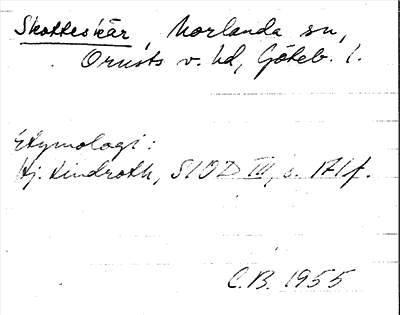 Skotteskär, Morlanda sn,
Orusts v. hd, Göteb. l.
Etymologi:
Hj. Lindroth, SIOD III, s. 171 f.
C.B. 1955